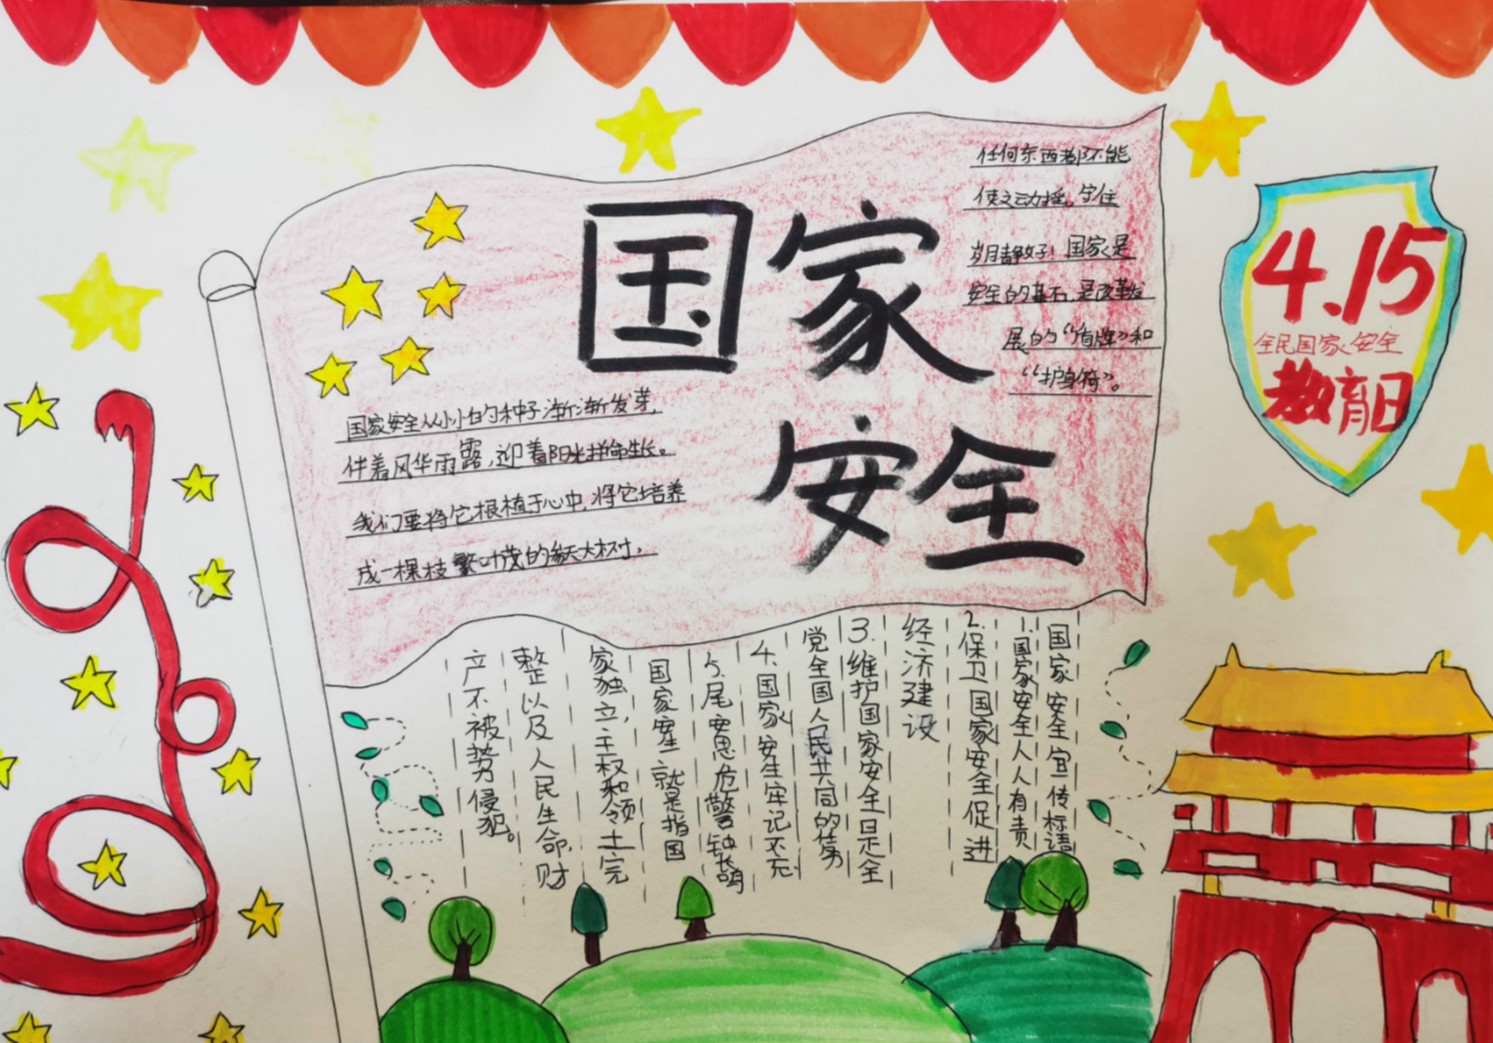 国家
安全
任何东西都不能
使之动摇。守住
岁月静好！国家是
安全的基石，是改革发
展的“盾牌”和
“护身符”。
国家安全从小小的种子渐渐发芽，
伴着风华雨露，迎着阳光拼命生长。
我们要将它根植于心中，将它培养
成一棵枝繁叶茂的参天大树，
4.15
全民国家安全
教育日
国家安全宣传标语
1.国家安全人人有责
2.保卫国家安全促进
经济建设
3.维护国家安全是全
党全国人民共同的
4.国家安全牢记不忘
5.居安思危警钟长鸣
国家安全就是指国
家独立，主权和领土完
整以及人民生命财
产不被势侵犯。